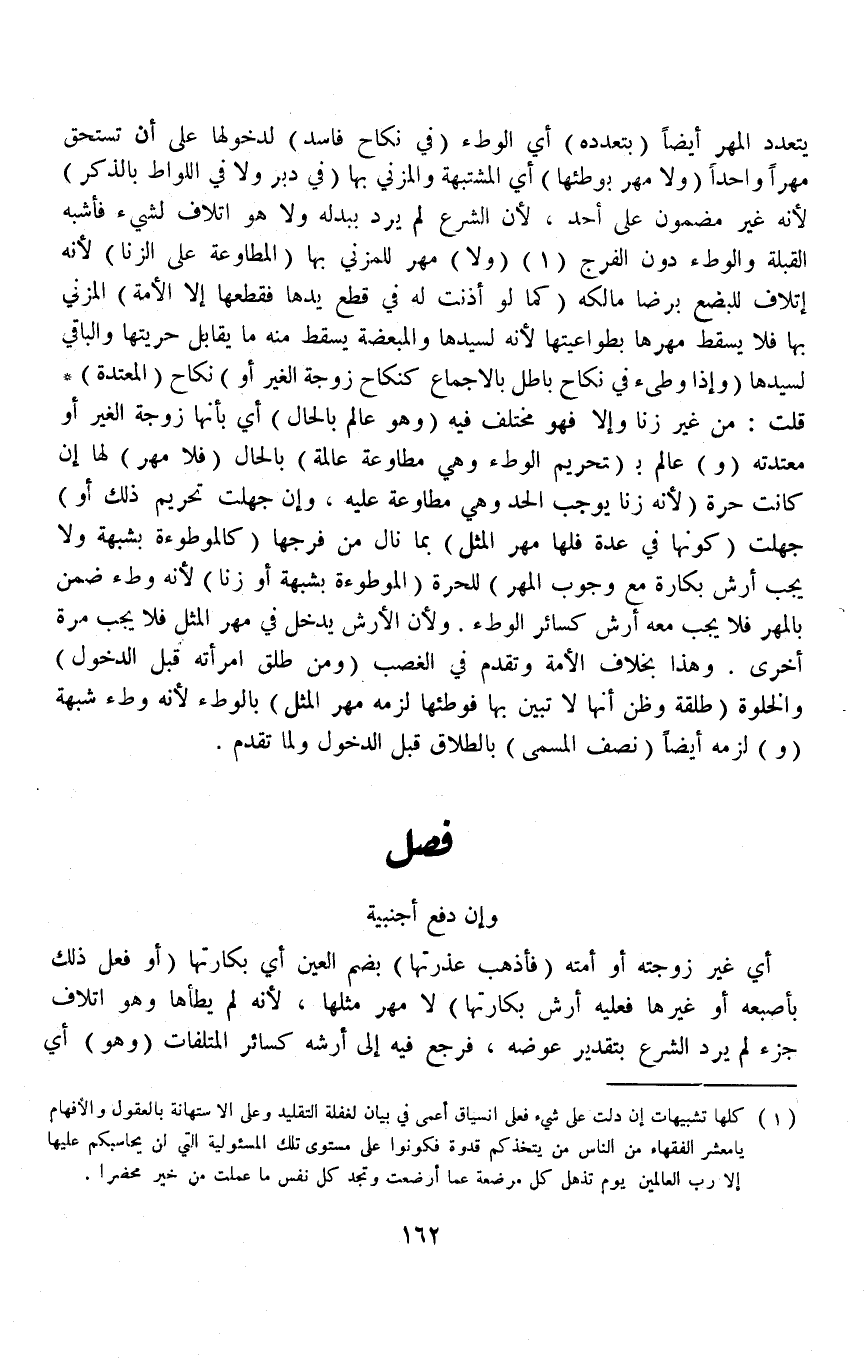 يتعدد المهر أيضاً ( بتعدده ) أي الوطء ( في نكاح فاسد ) لدخولها على أن تستحق
مهراً واحداً ( ولا مهر بوطئها ) أي المشتبهة والمزني بها ( في دبر ولا في اللواط بالذكر )
لأنه غير مضمون على أحد ، لأن الشرع لم يرد ببدله ولا هو اتلاف لشيء فأشبه
القبلة والوطء دون الفرج ( ١ ) ( ولا ) مهر للمزني بها ( المطاوعة على الزنا ) لأنه
إتلاف للبضع برضا مالكه ( كما لو أذنت له في قطع يدها فقطعها إلا الأمة ) المزني
بها فلا يسقط مهرها بطواعيتها لأنه لسيدها والمبعضة يسقط منه ما يقابل حريتها والباقي
لسيدها ( وإذا وطىء في نكاح باطل بالاجماع كنكاح زوجة الغير أو ) نكاح ( المعتدة ) *
قلت : من غير زنا وإلا فهو مختلف فيه ( وهو عالم بالحال ) أي بأنها زوجة الغير أو
معتدته ( و ) عالم بـ ( تحريم الوطء وهي مطاوعة عالمة ) بالحال ( فلا مهر ) لها إن
كانت حرة ( لأنه زنا يوجب الحد وهي مطاوعة عليه ، وإن جهلت تحريم ذلك أو )
جهلت ( كونها في عدة فلها مهر المثل ) بما نال من فرجها ( كالموطوءة بشبهة ولا
يجب أرش بكارة مع وجوب المهر ) للحرة ( الموطوءة بشبهة أو زنا ) لأنه وطء ضمن
بالمهر فلا يجب معه أرش كسائر الوطء . ولأن الأرش يدخل في مهر المثل فلا يجب مرة
أخرى . وهذا بخلاف الأمة وتقدم في الغصب ( ومن طلق امرأته قبل الدخول )
والخلوة ( طلقة وظن أنها لا تبين بها فوطئها لزمه مهر المثل ) بالوطء لأنه وطء شبهة
( و ) لزمه أيضاً ( نصف المسمى ) بالطلاق قبل الدخول ولما تقدم .
فصل
وإن دفع أجنبية
أي غير زوجته أو أمته ( فأذهب عذرتها ) بضم العين أي بكارتها ( أو فعل ذلك
بأصبعه أو غيرها فعليه أرش بكارتها ) لا مهر مثلها ، لأنه لم يطأها وهو اتلاف
جزء لم يرد الشرع بتقدير عوضه ، فرجع فيه إلى أرشه كسائر المتلفات ( وهو ) أي
( ١ ) كلها تشبيهات إن دلت على شيء فعلى انسياق أعمى في بيان لغفلة التقليد وعلى الاستهانة بالعقول والأفهام
يامعشر الفقهاء من الناس من يتخذكم قدوة فكونوا على مستوى تلك المسئولية التي لن يحاسبكم عليها
إلا رب العالمين يوم تذهل كل مرضعة عما أرضعت وتجد كل نفس ما عملت من خير محضرا .
١٦٢